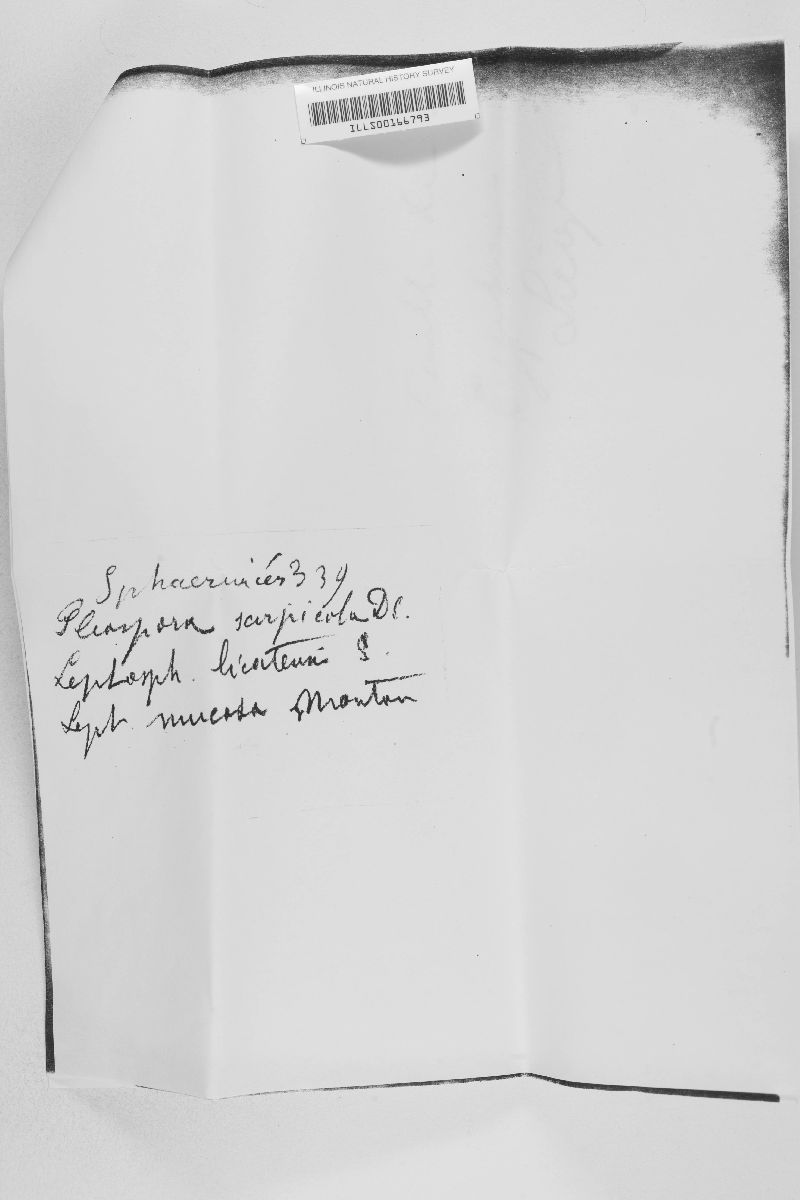 ILLINOIS NATURAL HISTORY SURVEY
ILLS00166793
Sphaeriacées 339
Pleospora scirpicola DC.
Leptosph. S.
Lept. mucosa Mouton